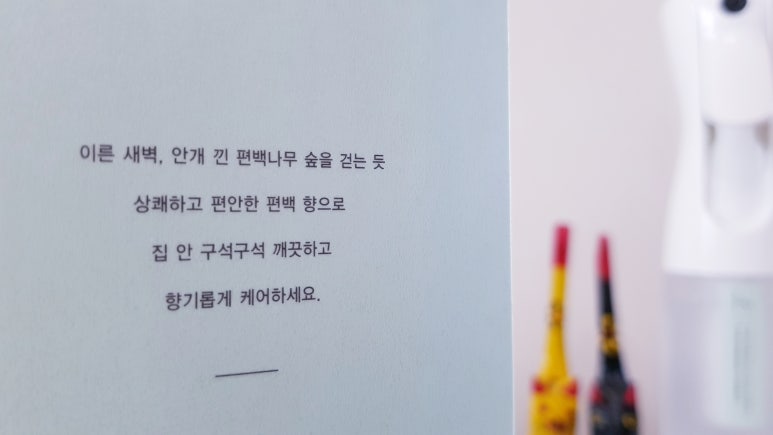 이른 새벽, 안개 낀 편백나무 숲을 걷는 듯
상쾌하고 편안한 편백 향으로
집 안 구석구석 깨끗하고
향기롭게 케어하세요.